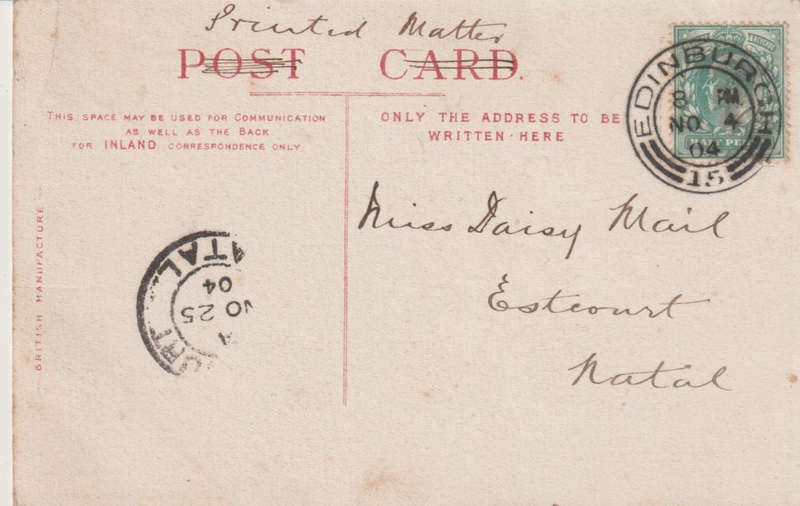 Printed Matter
POST CARD.
THIS SPACE MAY BE USED FOR COMMUNICATION
AS WELL AS THE BACK
FOR INLAND CORRESPONDENCE ONLY
ONLY THE ADDRESS TO BE
WRITTEN HERE
EDINBURGH
8 PM
NO 4
04
15
Miss Daisy Mail
Estcourt
Natal
BRITISH MANUFACTURE
ATAL
04
NO 25
A
URT